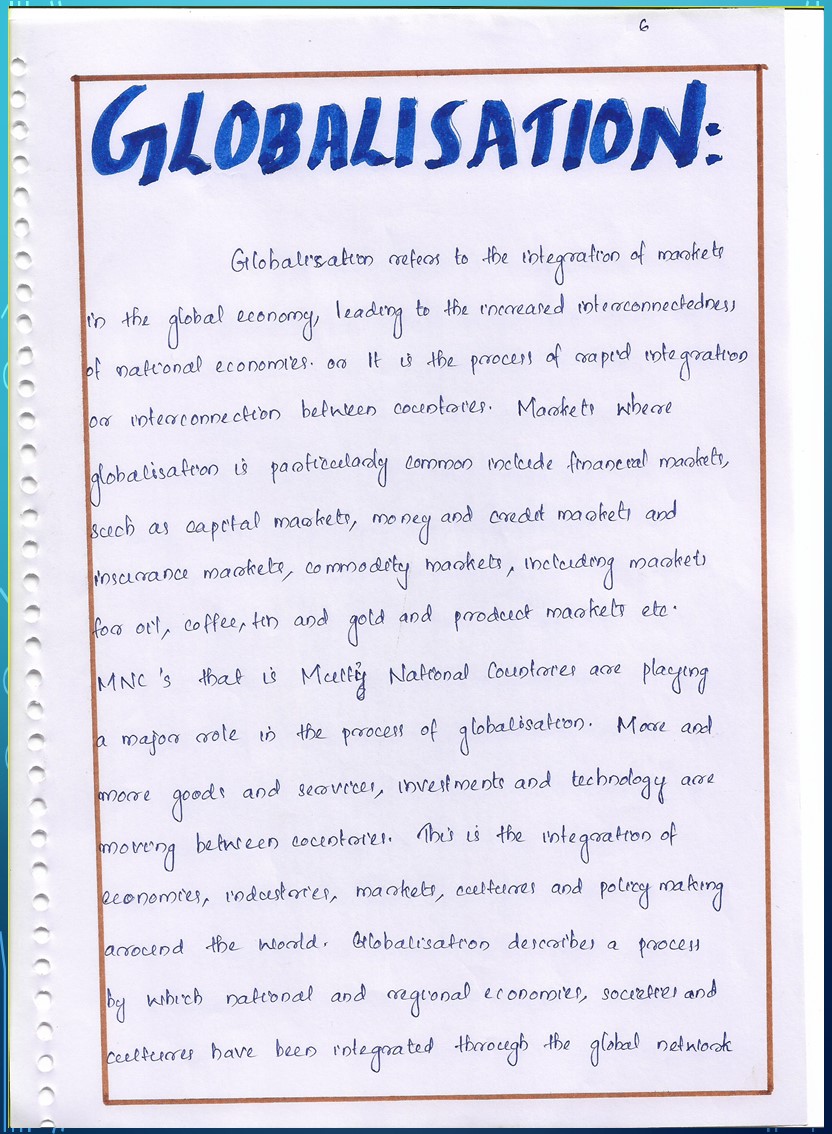 6
GLOBALISATION:
Globalisation refers to the integration of markets
in the global economy, leading to the increased interconnectedness
of national economies. or It is the process of rapid integration
or interconnection between countries. Markets where
globalisation is particularly common include financial markets,
such as capital markets, money and credit markets and
insurance markets, commodity markets, including markets
for oil, coffee, tin and gold and product markets etc.
MNC's that is Multy National Countries are playing
a major role in the process of globalisation. More and
more goods and services, investments and technology are
moving between countries. This is the integration of
economies, industries, markets, cultures and policy making
around the world. Globalisation describes a process
by which national and regional economies, societies and
cultures have been integrated through the global network